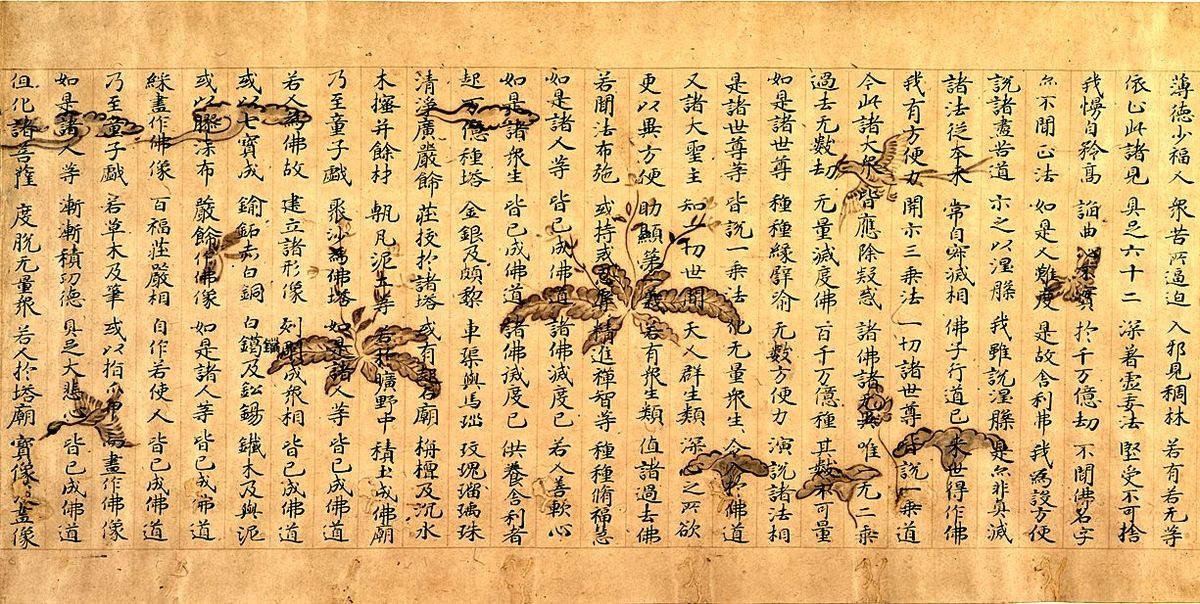 薄德少福人 衆苦所逼迫 入邪見稠林 若有若无等
依止此諸見 具足六十二 深著虛妄法 堅受不可捨
我慢自矜高 諂曲心不實 於千万億劫 不聞佛名字
亦不聞正法 如是人難度 是故舍利弗 我爲設方便
說諸盡苦道 示之以涅槃 我雖說涅槃 是亦非真滅
諸法從本来 常自寂滅相 佛子行道已 来世得作佛
我有方便力 開示三乗法 一切諸世尊 皆說一乗道
今此諸大衆 皆應除疑惑 諸佛語无異 唯一无二乗
過去无數劫 无量滅度佛 百千万億種 其數不可量
如是諸世尊 種種縁譬喻 无數方便力 演說諸法相
是諸世尊等 皆說一乗法 化无量衆生 令入於佛道
又諸大聖主 知一切世間 天人群生類 深心之所欲
更以異方便 助顯第一義 若有衆生類 值諸過去佛
若聞法布施 或持戒忍辱 精進禪智等 種種脩福慧
如是諸人等 皆已成佛道 諸佛滅度已 若人善軟心
如是諸衆生 皆已成佛道 諸佛滅度已 供養舍利者
起万億種塔 金銀及頗黎 車璖與馬瑙 玫瑰瑠璃珠
清淨廣嚴飾 莊挍於諸塔 或有起石廟 栴檀及沉水
木櫁并餘材 甎瓦泥土等 若於曠野中 積土成佛廟
乃至童子戲 聚沙爲佛塔 如是諸人等 皆已成佛道
若人爲佛故 建立諸形像 刻雕成衆相 皆已成佛道
或以七寶成 鍮鉐赤白銅 白鑞及鈆錫 鐵木及與泥
或以膠漆布 嚴飾作佛像 如是諸人等 皆已成佛道
綵畫作佛像 百福莊嚴相 自作若使人 皆已成佛道
乃至童子戲 若草木及筆 或以指爪甲 而畫作佛像
如是諸人等 漸漸積功德 具足大悲心 皆已成佛道
但化諸菩薩 度脫无量衆 若人於塔廟 寶像及畫像